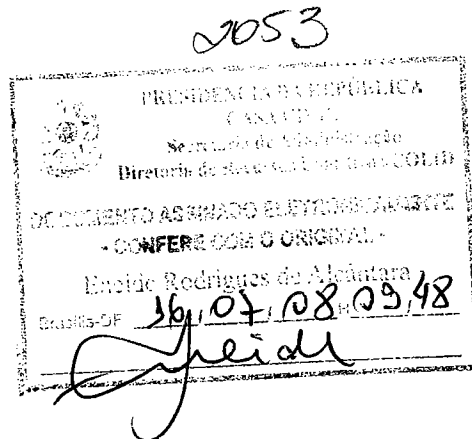 2053
PRESIDÊNCIA DA REPÚBLICA
CASA CIVIL
Secretaria de Administração
Diretoria de
DOCUMENTO ASSINADO ELETRONICAMENTE
- CONFERE COM O ORIGINAL -
Eneide Rodrigues de Alcântara
Brasília-DF 16, 07, 08 H 09,48
Eneide